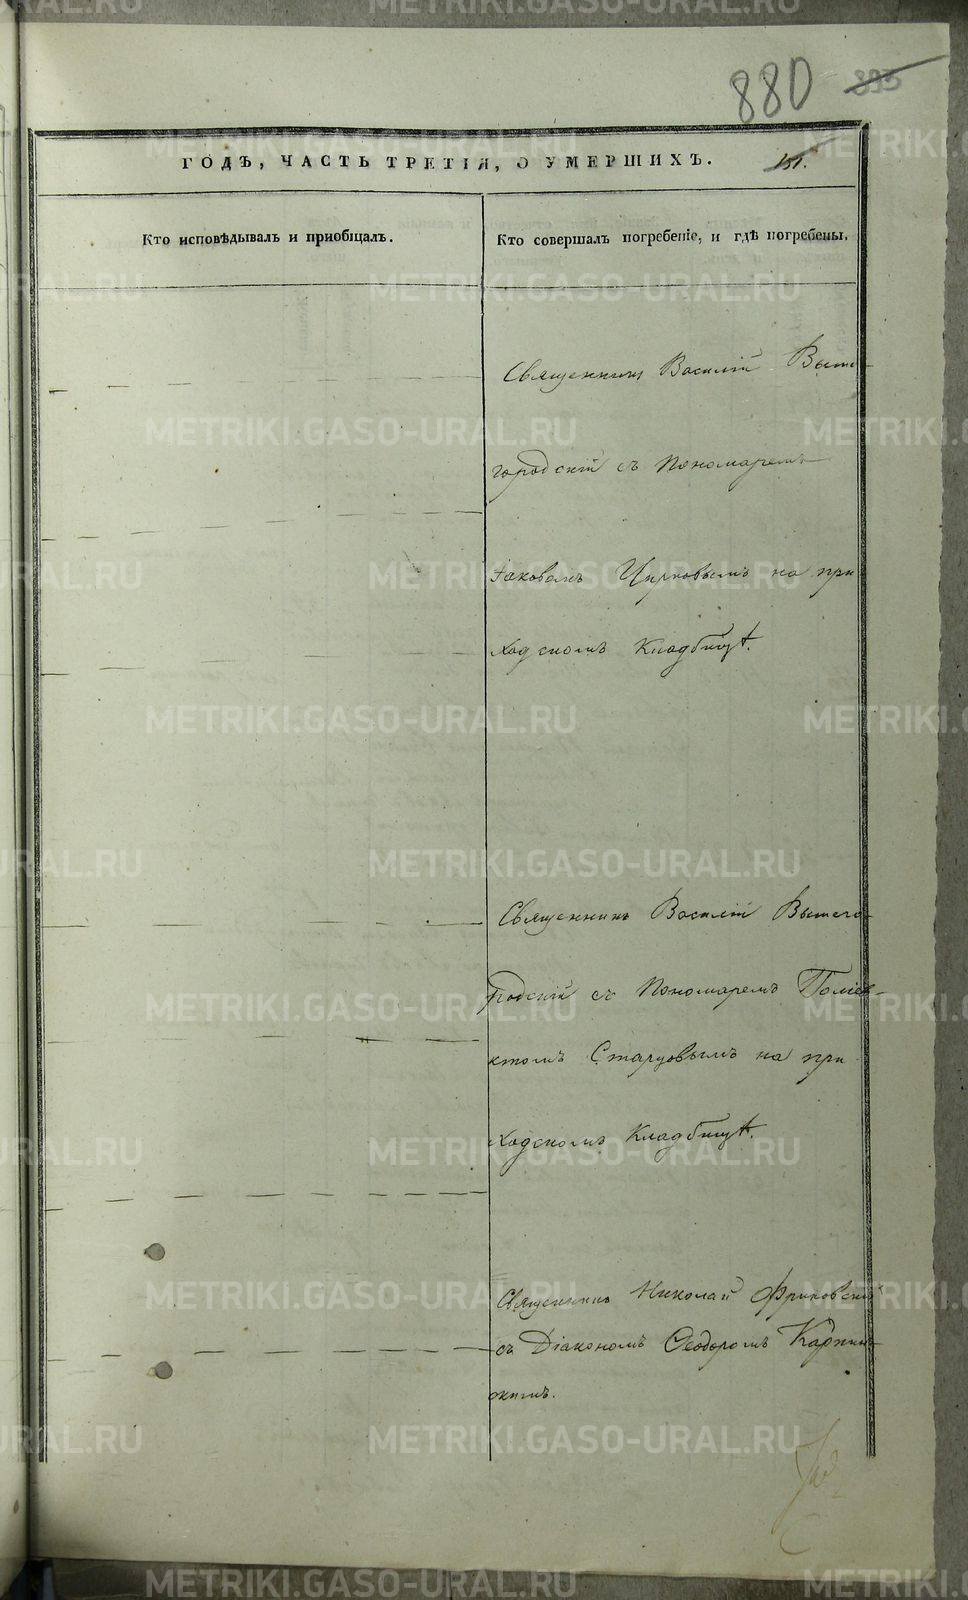 880 895
ГОДЪ, ЧАСТЬ ТРЕТІЯ, О УМЕРШИХЪ. 151.
Кто исповѣдывалъ и пріобщалъ.
Кто совершалъ погребеніе, и гдѣ погребены.
Священникъ Василій Выше-
городскій съ Пономаремъ
Іаковомъ Цирковымъ на при
ходскомъ Кладбищѣ.
Священникъ Василій Вышего-
родскій съ Пономаремъ Поліев-
ктомъ Старцовымъ на при
ходскомъ Кладбищѣ.
Священникъ Николай Фриковскій
съ Діакономъ Ѳеодоромъ Карпин-
скимъ.
METRIKI.GASO-URAL.RU